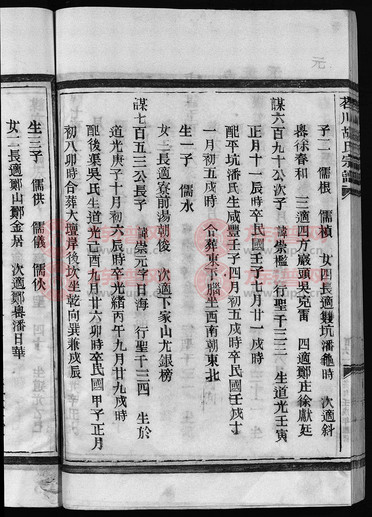 若川胡氏宗譜
子二 儒根 儒楨 女四長適雙坑潘龜時 次適斜
礬徐春和 三適四方嚴頭吳克雷 四適鄭庄徐獻廷
謀六百九十公次子 諱崇檻 行聖千三三一 生道光壬寅
正月十一辰時卒民國壬子七月廿一戌時
配平坑潘氏生咸豐壬子四月初五戌時卒民國壬戌十
一月初五戌時 合葬東下腦坐西南朝東北
生一子 儒水
女二長適寮前湯朝俊 次適下家山尤銀榜
謀七百五三公長子 諱崇元字日海 行聖千三四 生於
道光庚子十月初六辰時卒光緒丙午九月廿九戌時
配後渠吳氏生道光己酉九月廿六卯時卒民國甲子正月
初八卯時合葬大壟岸後坎坐乾向巽兼戌辰
生三子 儒供 儒儀 儒伙
女二長適鄭山鄭金居 次適鄭礬潘日華